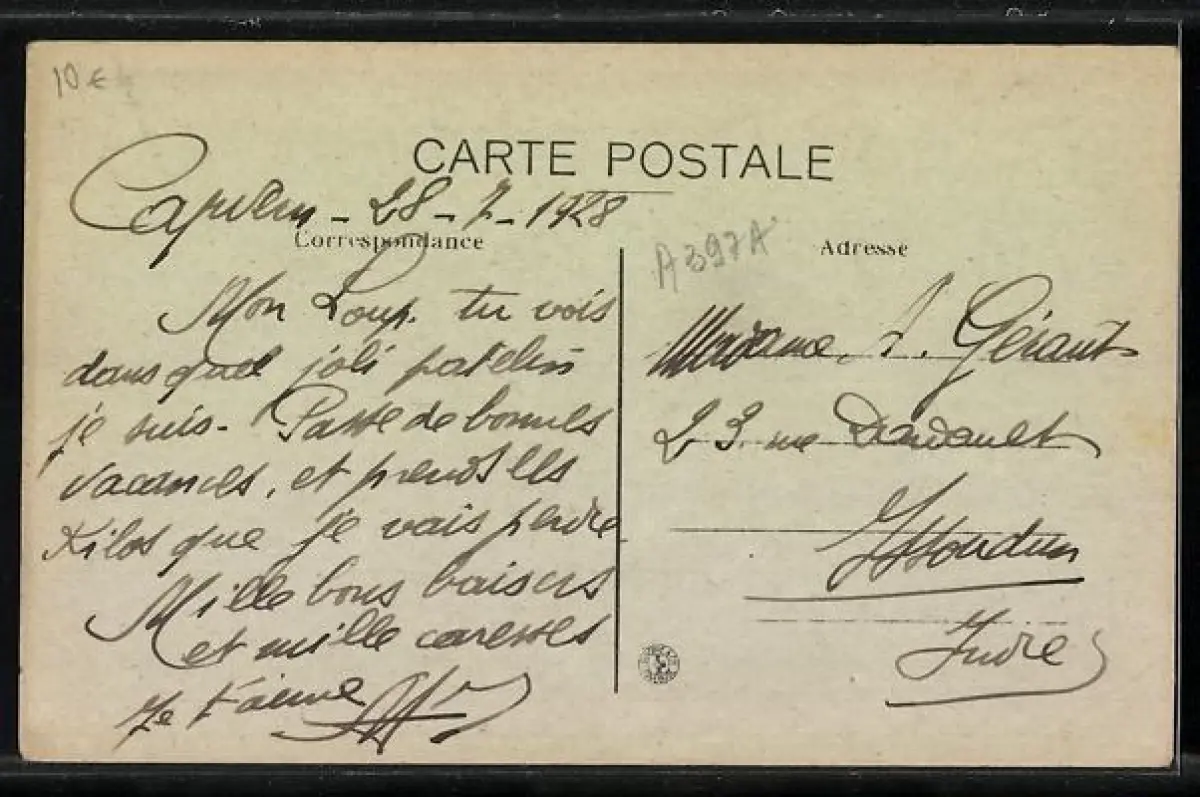 10 €
CARTE POSTALE
Capvern - 28-7-1928
Correspondance
A397A
Adresse
Mon Loup, tu vois
dans quel joli patelin
je suis. Passe de bonnes
vacances, et prends les
Kilos que je vais perdre
Mille bons baisers
et mille caresses
Je t'aime
Madame A. Géraut
23 rue
Issoudun
Indre